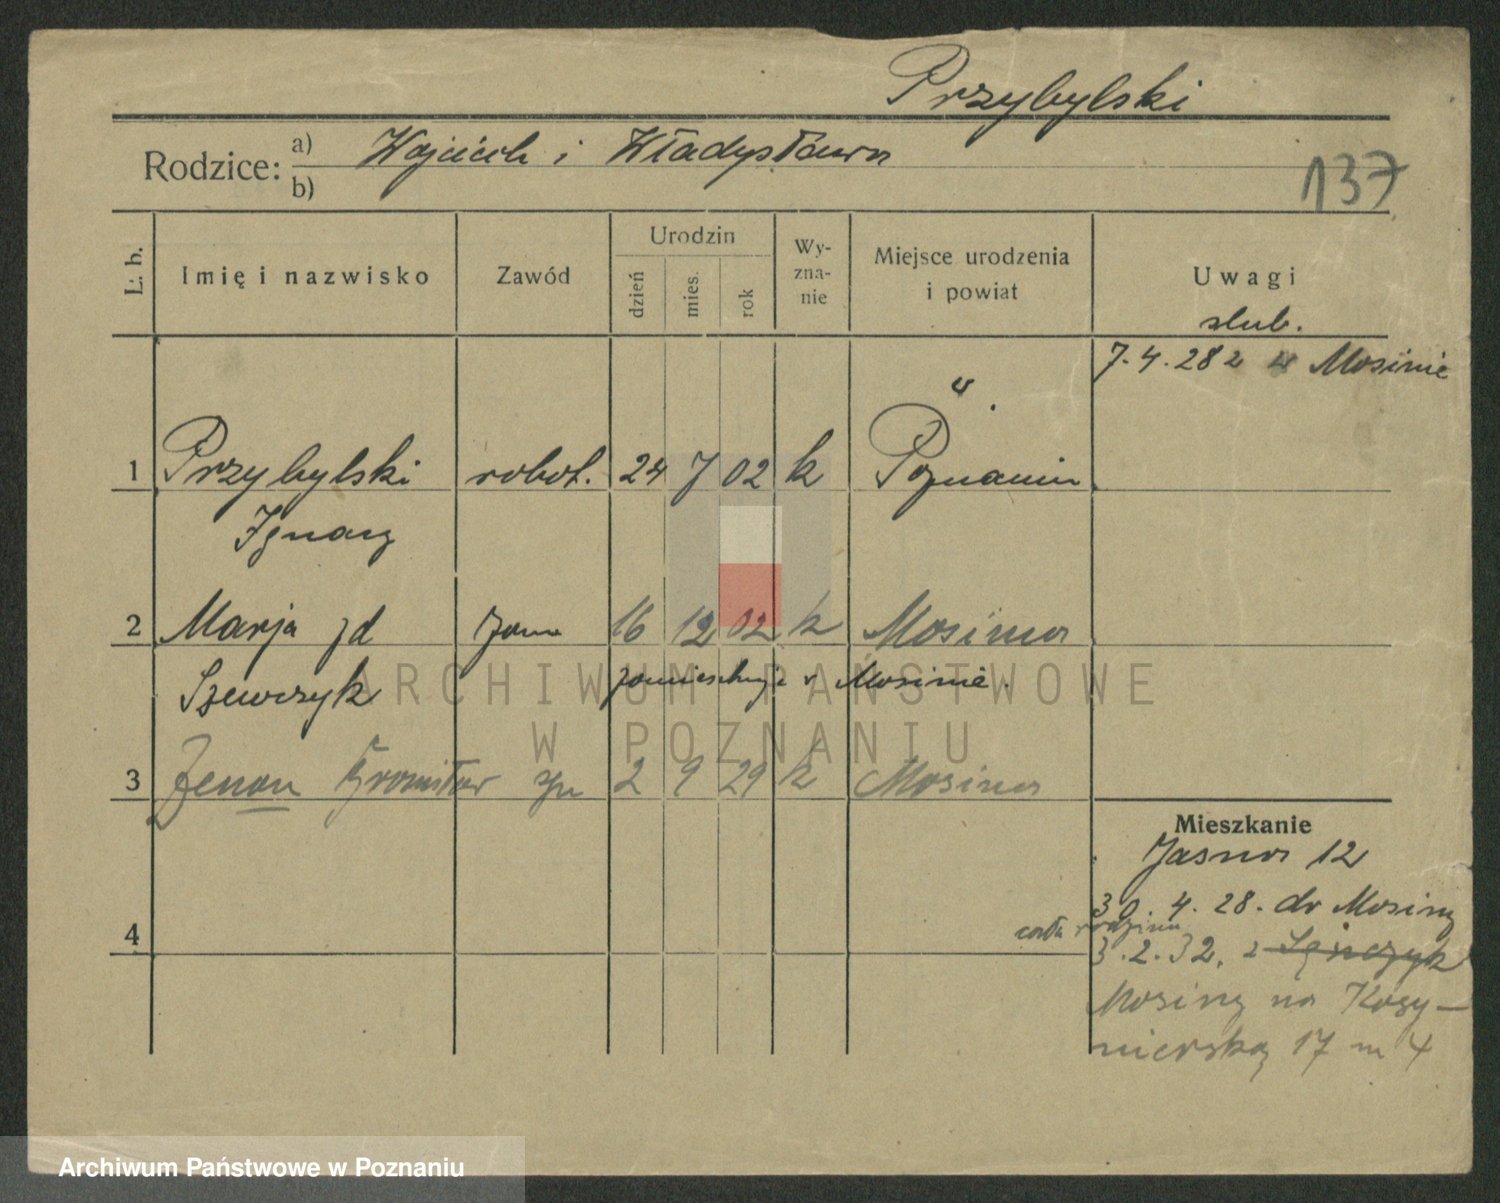 Przybylski
Rodzice: a) Wojciech i Władysława
b)
137
L. b. Imię i nazwisko Zawód Urodzin dzień mies. rok Wy-zna-nie Miejsce urodzenia i powiat Uwagi
slub.
7.4.28 z w Mosinie
1 Przybylski robot. 24 7 02 k Poznaniu
Ignacy
2 Marja zd żona 16 12 02 k Mosina
Szewczyk zamieszkuje w Mosinie.
3 Zenon Bronisław syn 2 9 29 k Mosina
Mieszkanie
Jasna 12
30.4.28. do Mosiny
4 cała rodzina
3.2.32. z
Mosiny na Kosy-
nierską 17 m 4
ARCHIWUM PAŃSTWOWE
W POZNANIU
Archiwum Państwowe w Poznaniu